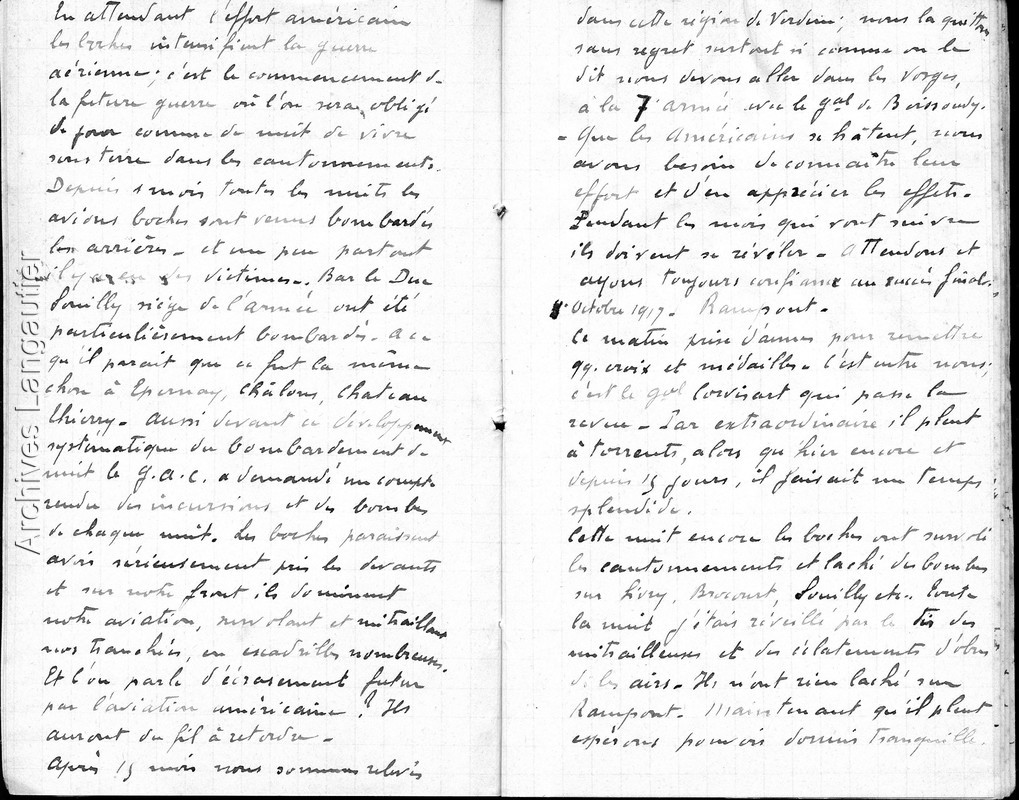 En attendant l'effort américain
les boches intensifient la guerre
aérienne; c'est le commencement de
la future guerre où l'on sera obligé
de jour comme de nuit de vivre
sous terre dans les cantonnements.
Depuis 1 mois toutes les nuits les
avions boches sont venus bombardés
les arrières - et un peu partout
il y a eu des victimes. Bar le Duc
Souilly siège de l'armée ont été
particulièrement bombardés. A ce
qu'il parait que ce fut la même
chose à Epernay, Châlons, Chateau
Thierry - aussi devant ce développement
systématique du bombardement de
nuit le G.A.C. a demandé un compte
rendu des incursions et des bombes
de chaque nuit. Les boches paraissent
avoir sérieusement pris les devants
et sur notre front ils dominent
notre aviation, survolant et mitraillant
nos tranchées, en escadrilles nombreuses.
Et l'on parle d'écrasement futur
par l'aviation américaine ? Ils
auront du fil à retordre -
Après 15 mois nous sommes relevés
dans cette région de Verdun; nous la quittons
sans regret surtout si comme on le
dit nous devons aller dans les Vosges,
à la 7 armée avec le gal de Boissoudy.
- Que les Américains se hâtent, nous
avons besoin de connaître leur
effort et d'en apprécier les effets.
Pendant les mois qui vont suivre
ils doivent se révéler - Attendons et
ayons toujours confiance au succès final.
1er Octobre 1917 - Rampont -
Ce matin prise d'armes pour remettre
qq. croix et médailles - c'est entre nous;
c'est le gal Corvisart qui passe la
revue - Par extraordinaire il pleut
à torrents, alors qu'hier encore et
depuis 15 jours, il faisait un temps
splendide.
Cette nuit encore les boches ont survolé
les cantonnements et laché des bombes
sur Ivry, Brocourt, Souilly etc. Toute
la nuit j'étais réveillé par le tir des
mitrailleuses et des éclatements d'obus
ds les airs - Ils n'ont rien laché sur
Rampont. Maintenant qu'il pleut
espérons pouvoir dormir tranquille.
Archives Langautier